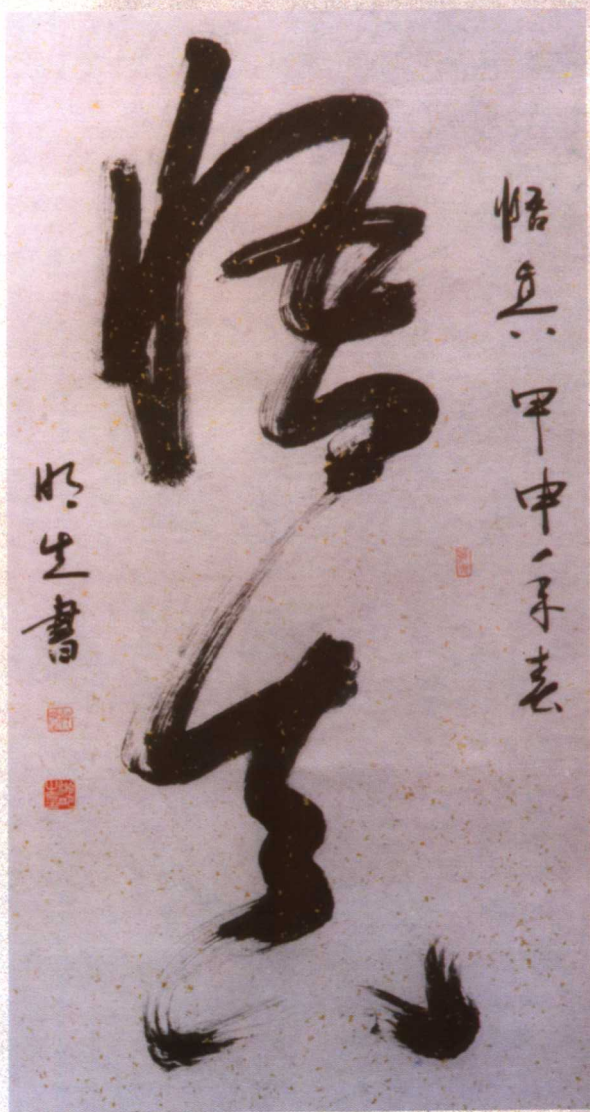 悟真
悟真 甲申年春
明生書